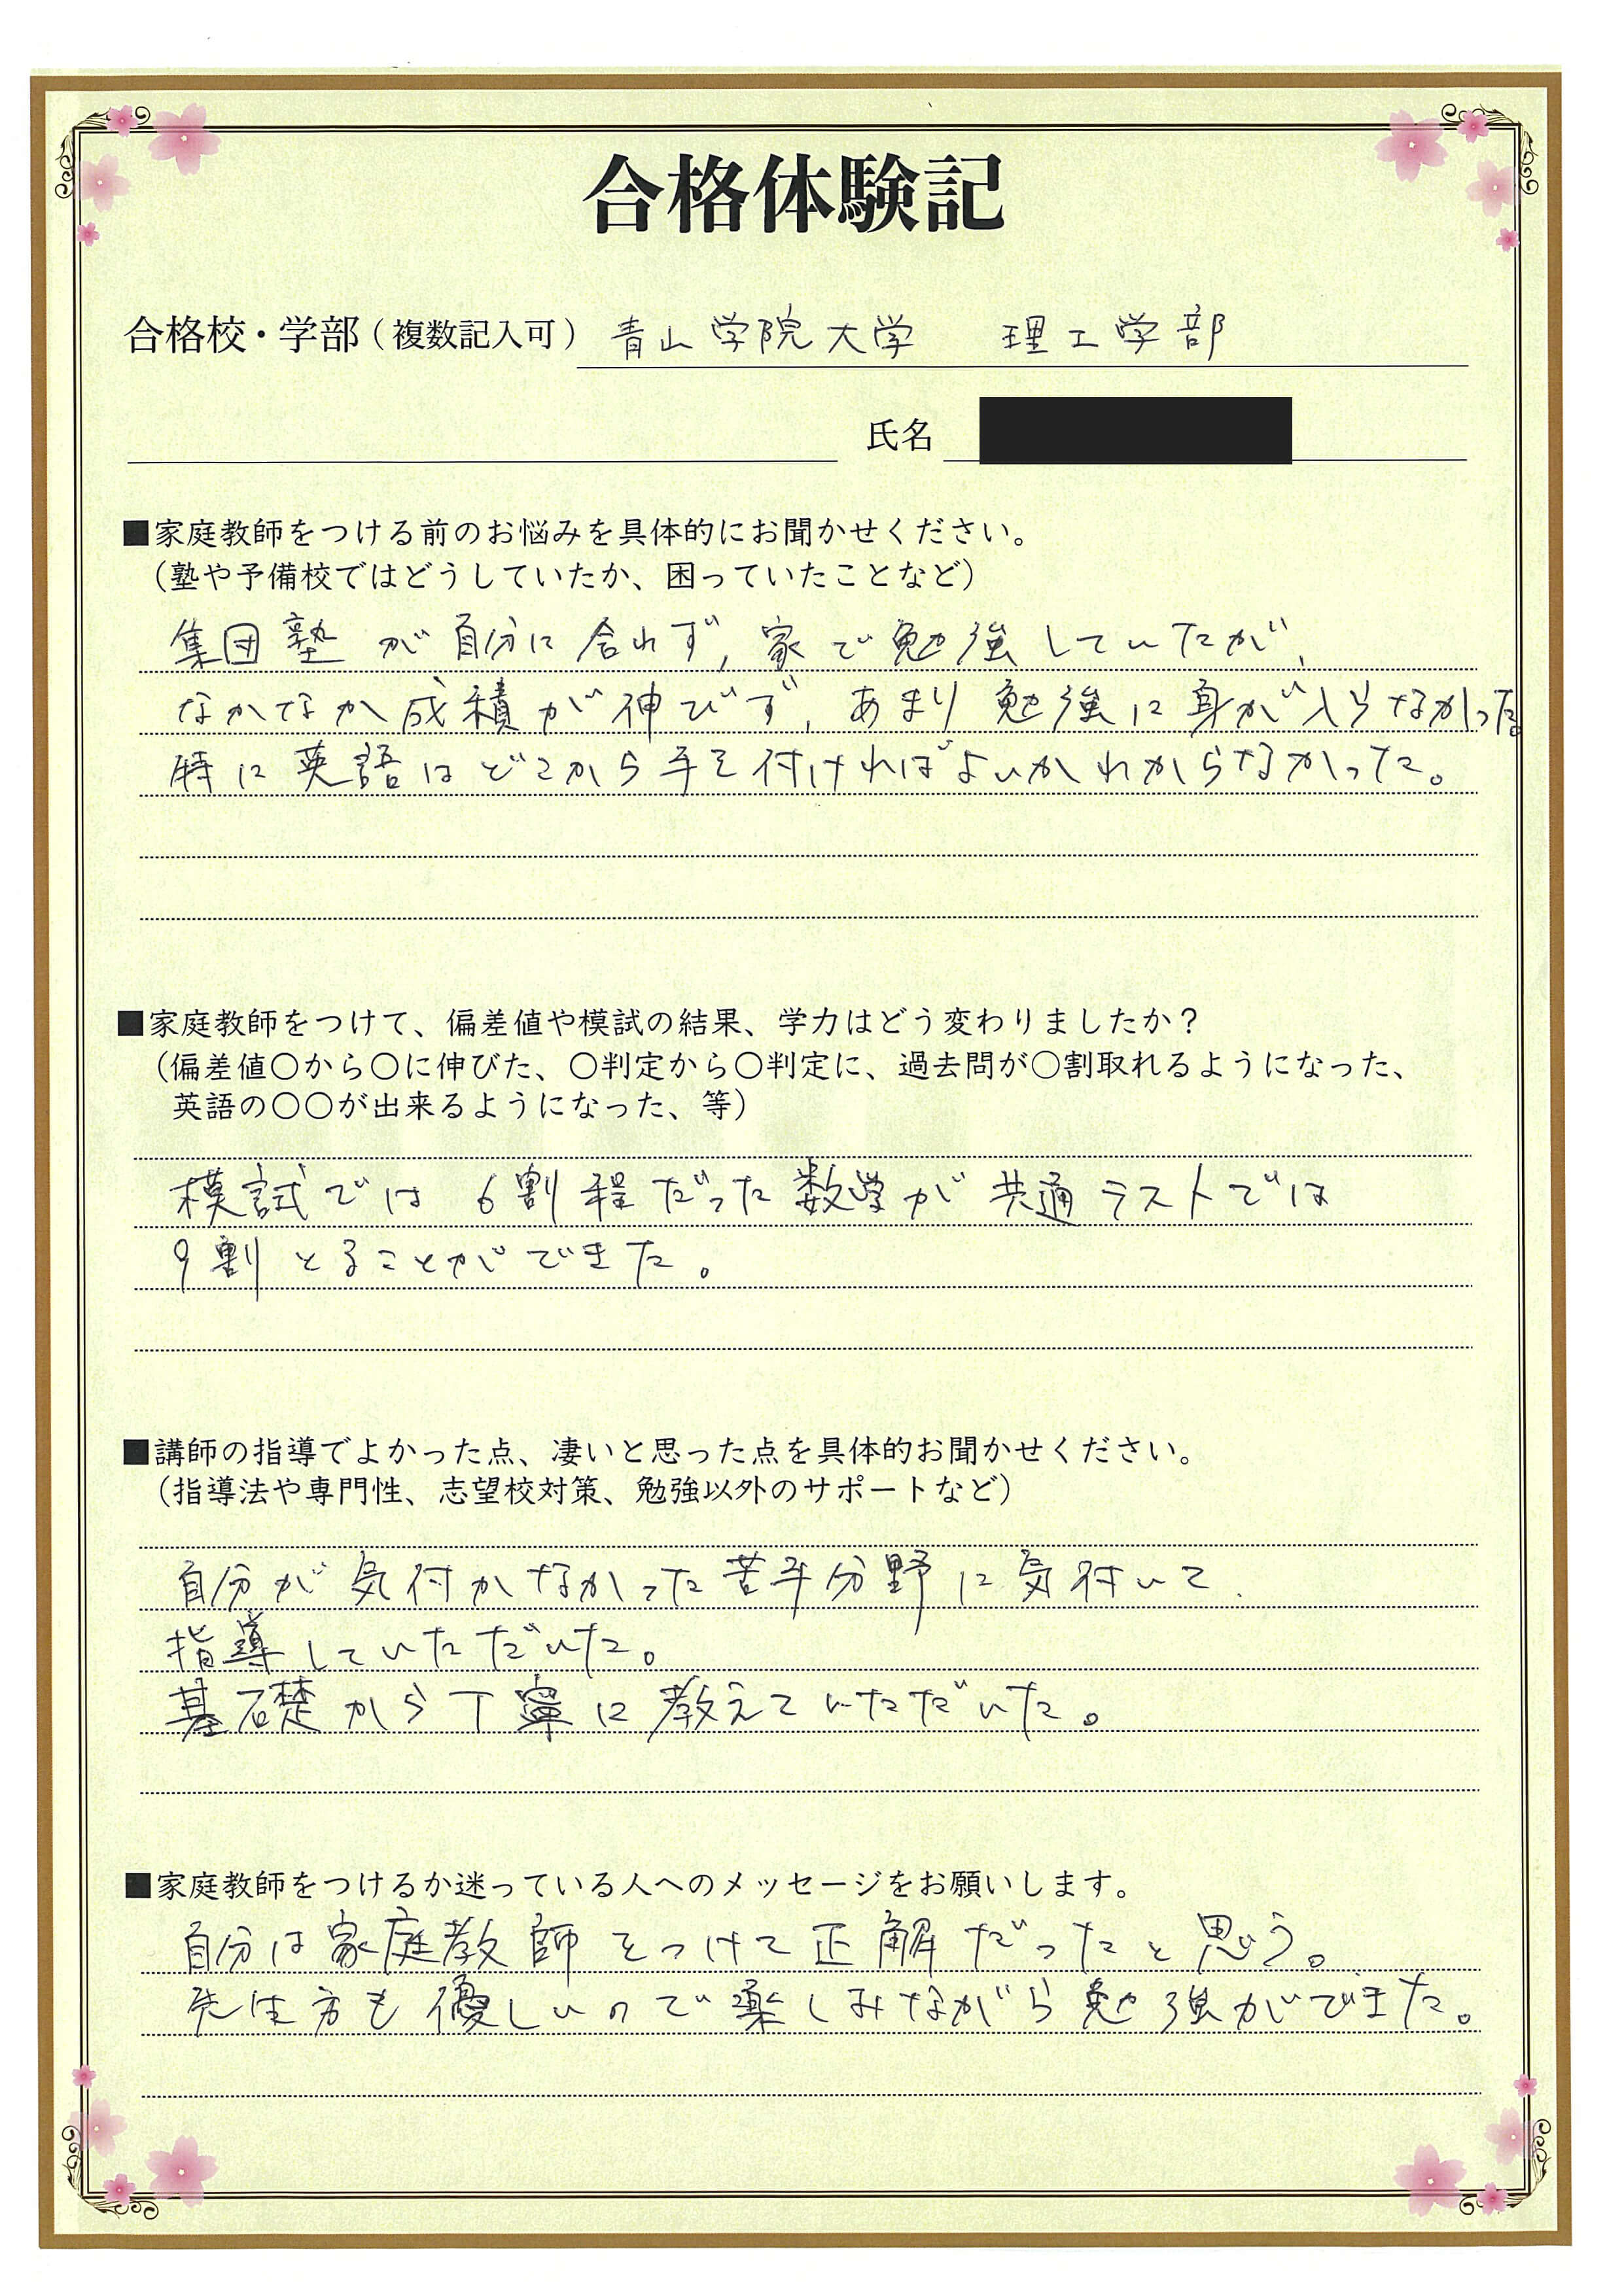 合格体験記
合格校・学部（複数記入可） 青山学院大学 理工学部
氏名
■家庭教師をつける前のお悩みを具体的にお聞かせください。
（塾や予備校ではどうしていたか、困っていたことなど）
集団塾が自分に合わず、家で勉強していたが、
なかなか成績が伸びず、あまり勉強に身が入らなかった。
特に英語はどこから手を付ければよいかわからなかった。
■家庭教師をつけて、偏差値や模試の結果、学力はどう変わりましたか？
（偏差値〇から〇に伸びた、〇判定から〇判定に、過去問が〇割取れるようになった、
英語の〇〇が出来るようになった、等）
模試では6割程だった数学が共通テストでは
9割とることができた。
■講師の指導でよかった点、凄いと思った点を具体的お聞かせください。
（指導法や専門性、志望校対策、勉強以外のサポートなど）
自分が気付かなかった苦手分野に気付いて、
指導していただいた。
基礎から丁寧に教えていただいた。
■家庭教師をつけるか迷っている人へのメッセージをお願いします。
自分は家庭教師をつけて正解だったと思う。
先生方も優しいので楽しみながら勉強ができた。